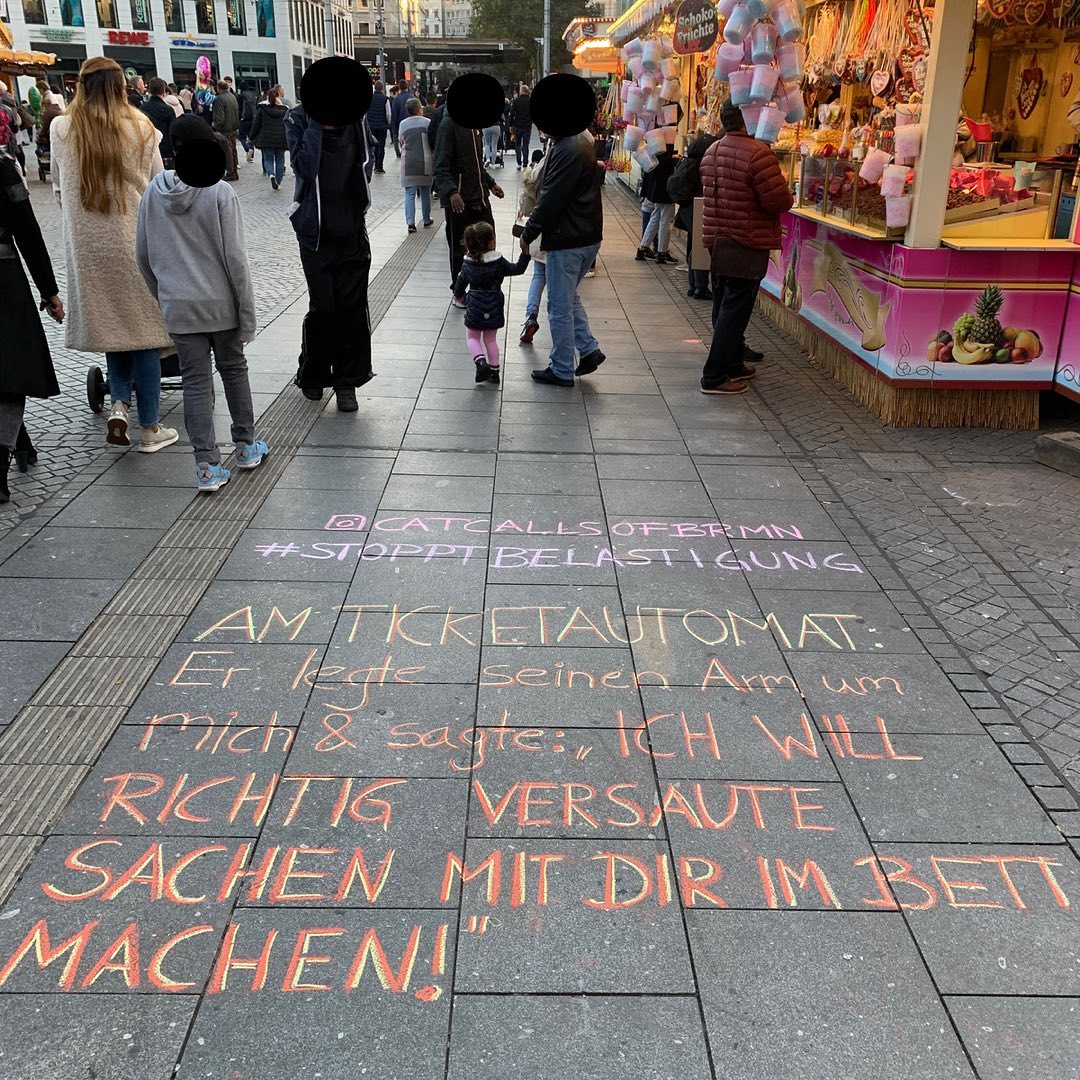 REWE
Schoko
Früchte
@CATCALLSOFBRMN
#STOPPTBELÄSTIGUNG
AM TICKETAUTOMAT:
Er legte seinen Arm um
mich & sagte: „ICH WILL
RICHTIG VERSAUTE
SACHEN MIT DIR IM BETT
MACHEN!"